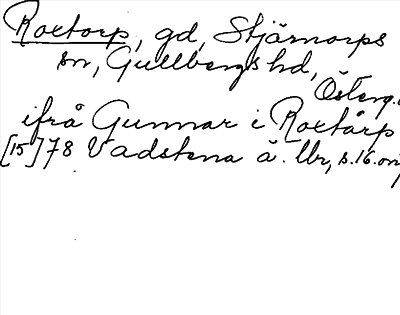 Roxtorp, gd, Stjärnorps
sn, Gullbergs hd,
Österg.
ifrå Gunnar i Roxtårp
[15]78 Vadstena ä. Ur, s. 16. orig